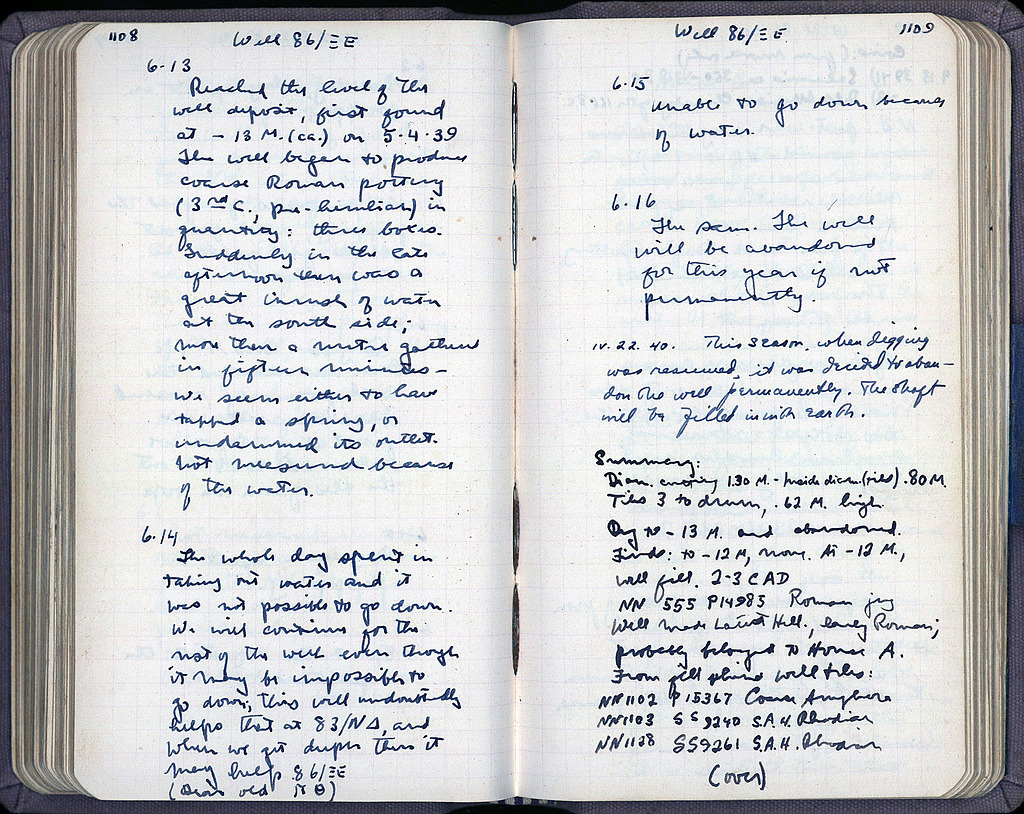 1108
Well 86/ΞΕ
6-13
Reached the level of the
well deposit, first found
at - 13 M. (ca.) on 5.4.39
The well began to produce
coarse Roman pottery
(3rd C., pre-Herulian) in
quantity: three boxes.
Suddenly in the late
afternoon there was a
great inrush of water
at the south side;
more than a metre gathered
in fifteen minutes -
we seem either to have
tapped a spring, or
undammed its outlet.
Not measured because
of the water.
6.14
The whole day spent in
taking out water and it
was not possible to go down.
We will continue for the
rest of the week even though
it may be impossible to
go down; this will undoubtedly
helps that at 83/ΝΔ, and
when we get deeper there it
may help 86/ΞΕ
old
1109
Well 86/ΞΕ
6.15
Unable to go down because
of water.
6.16
The same. The well
will be abandoned
for this year if not
permanently.
IV. 22. 40. This season, when digging
was resumed, it was decided to aban-
don the well permanently. The shaft
will be filled in with earth.
Summary:
Diam. 1.30 M. - Inside diam. (tiles) .80 M.
Tiles 3 to drum, .62 M. high
Dug to - 13 M. and abandoned.
Finds: to - 12 M, none. At - 12 M.,
well fill. 2-3 C AD
NN 555 P14983 Roman jug
Well made Latest Hell., early Roman;
probably belonged to House A.
From fill behind well tiles:
NN1102 P15367 Coarse Amphora
NN1103 SS9240 S.A.H. Rhodian
NN1128 SS9261 S.A.H. Rhodian
(over)